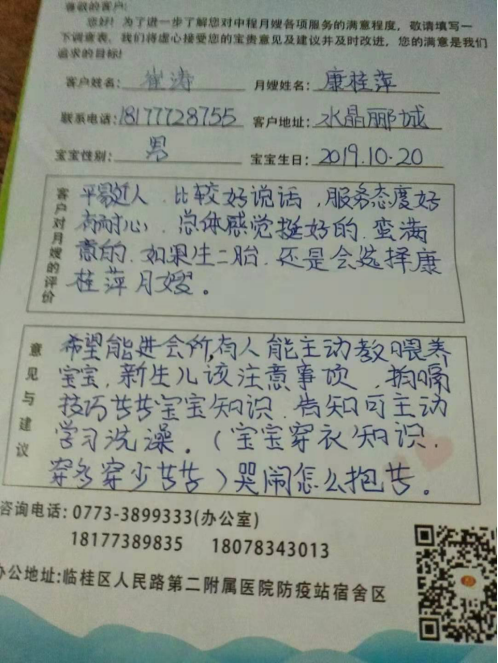 尊敬的客户:
您好! 为了进一步了解您对中程月嫂各项服务的满意程度, 敬请填写一
下调查表。我们将虚心接受您的宝贵意见及建议并及时改进, 您的满意是我们
追求的目标!
客户姓名: 崔涛 月嫂姓名: 康桂萍
联系电话: 18177728755 客户地址: 水晶郦城
宝宝性别: 男 宝宝生日: 2019.10.20
客户对月嫂的评价
平易近人, 比较好说话, 服务态度好
有耐心. 总体感觉挺好的. 蛮满
意的. 如果生二胎. 还是会选择康
桂萍月嫂。
意见与建议
希望能进会所, 有人能主动教喂养
宝宝, 新生儿该注意事项. 拍嗝
技巧等等宝宝知识. 告知可主动
学习洗澡。(宝宝穿衣知识.
穿多穿少等等) 哭闹怎么抱等。
咨询电话: 0773-3899333(办公室)
18177389835 18078343013
办公地址: 临桂区人民路第二附属医院防疫站宿舍区